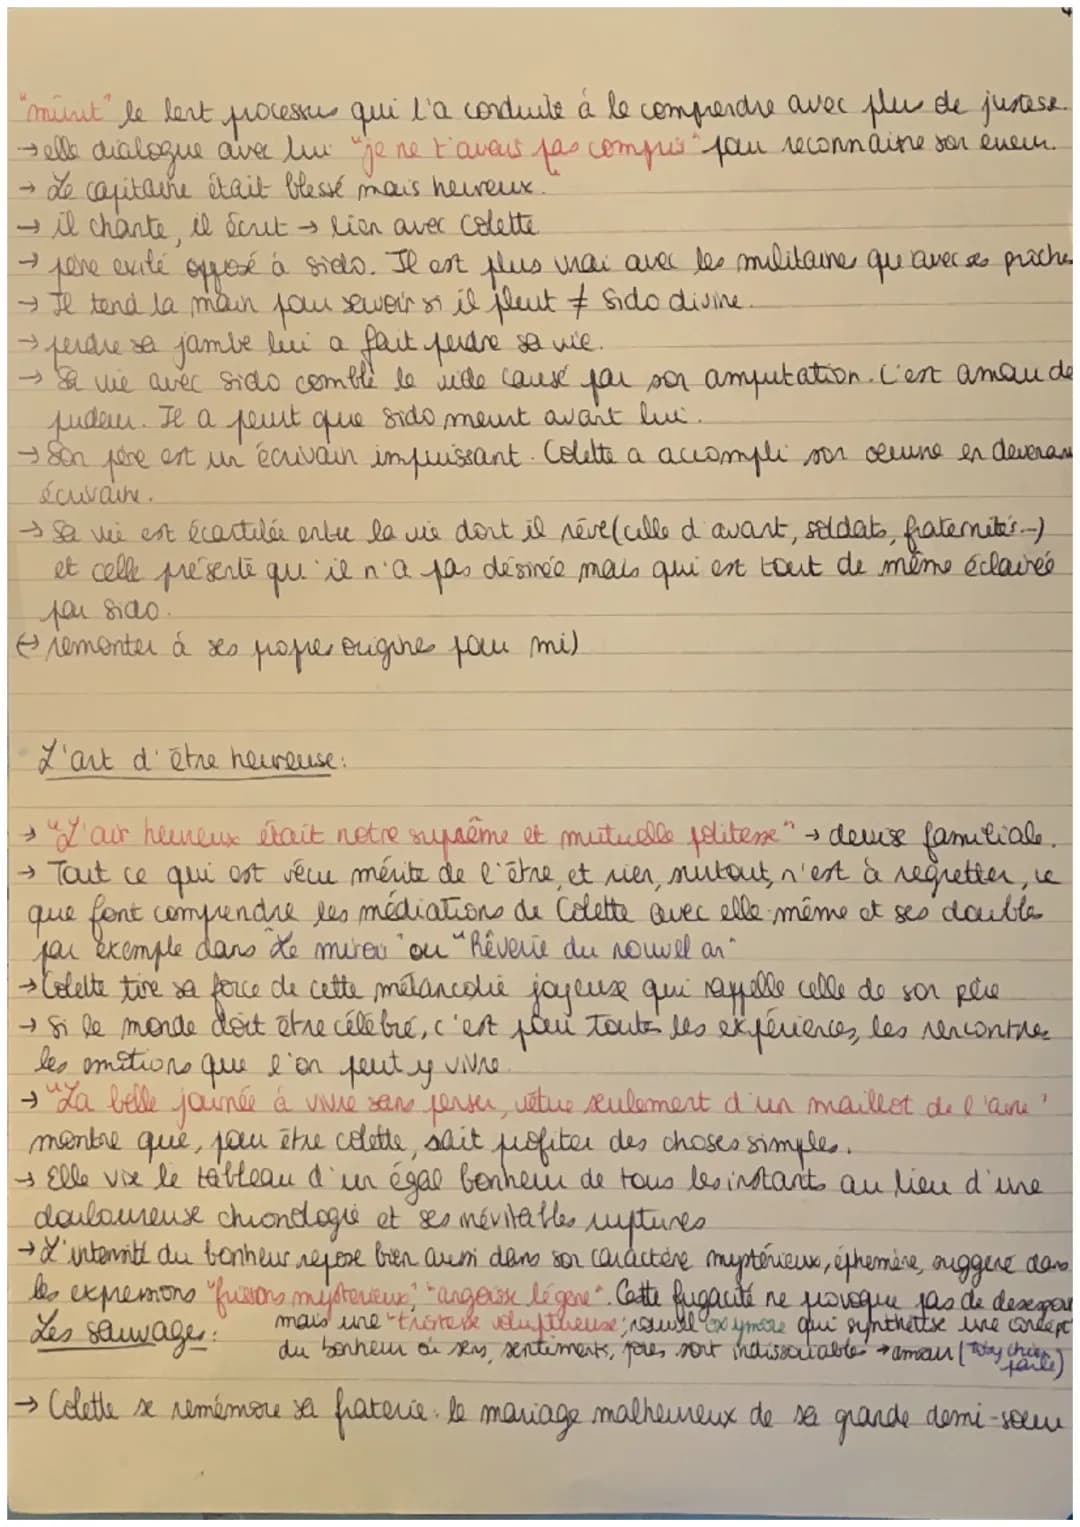 "mûrit" le lent processus qui l'a conduite à le comprendre avec plus de justesse.
→ elle dialogue avec lui "je ne t'avais pas compris" pour reconnaitre son erreur.
→ Le capitaine était blessé mais heureux.
→ il chante, il écrit → lien avec Colette
→ père exilé opposé à Sido. Il est plus vrai avec les militaires qu'avec ses proches
→ Il tend la main pour savoir si il pleut ≠ Sido divine.
→ perdre sa jambe lui a fait perdre sa vie.
→ Sa vie avec Sido comble le vide causé par son amputation. C'est amour de
pudeur. Il a peur que Sido meurt avant lui.
→ Son père est un écrivain impuissant. Colette a accompli son oeuvre en devenant
écrivaine.
→ Sa vie est écartelée entre la vie dont il rêve (celle d'avant, soldats, fraternités...)
et celle présente qu'il n'a pas désirée mais qui est tout de même éclairée
par Sido.
(→ remonter à ses propres origines pour mi)
L'art d'être heureuse:
→ "L'air heureux était notre suprême et mutuelle politesse" → devise familiale.
→ Tout ce qui est vécu mérite de l'être, et rien, surtout, n'est à regretter, ce
que font comprendre les médiations de Colette avec elle-même et ses doubles
par exemple dans "Le miroir" ou "Rêverie du nouvel an"
→ Colette tire sa force de cette mélancolie joyeuse qui rappelle celle de son père
→ Si le monde doit être célébré, c'est pour toutes les expériences, les rencontres
les émotions que l'on peut y vivre.
→ "La belle journée à vivre sans penser, vêtue seulement d'un maillot de laine"
montre que, pour être colette, sait profiter des choses simples.
→ Elle vise le tableau d'un égal bonheur de tous les instants au lieu d'une
douloureuse chronologie et ses inévitables ruptures
→ L'intensité du bonheur repose bien aussi dans son caractère mystérieux, éphemère, suggéré dans
les expressions "frissons mystérieux", "angoisse légère". Cette fugacité ne provoque pas de désespoir
mais une "tristesse voluptueuse", nouvel oxymore qui synthétise une concept
Les sauvages:
du bonheur où sens, sentiments, joies sont indissociables → amour (Toby chien parle)
→ Colette se remémore sa fraterie: le mariage malheureux de sa grande demi-soeur